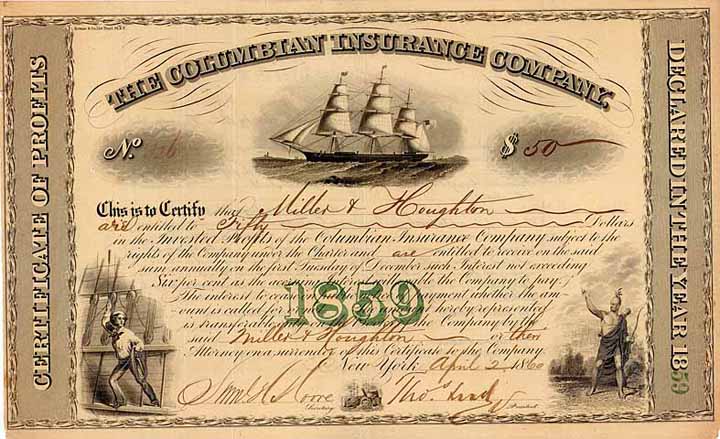 THE COLUMBIAN INSURANCE COMPANY.
CERTIFICATE OF PROFITS
DECLARED IN THE YEAR 1859
No.
$ 50
This is to Certify that Miller & Houghton
are entitled to Fifty Dollars
in the Invested Profits of the Columbian Insurance Company subject to the
rights of the Company under the Charter and are entitled to receive on the said
sum annually on the first Tuesday of December such Interest not exceeding
Six per cent as the to the Company to pay;
The interest to payment whether the am-
ount is called for hereby represented
1859
is transferable the Company by the
said Miller & Houghton or their
Attorney on a surrender of this Certificate to the Company.
New York April 2 1860
Secretary
President